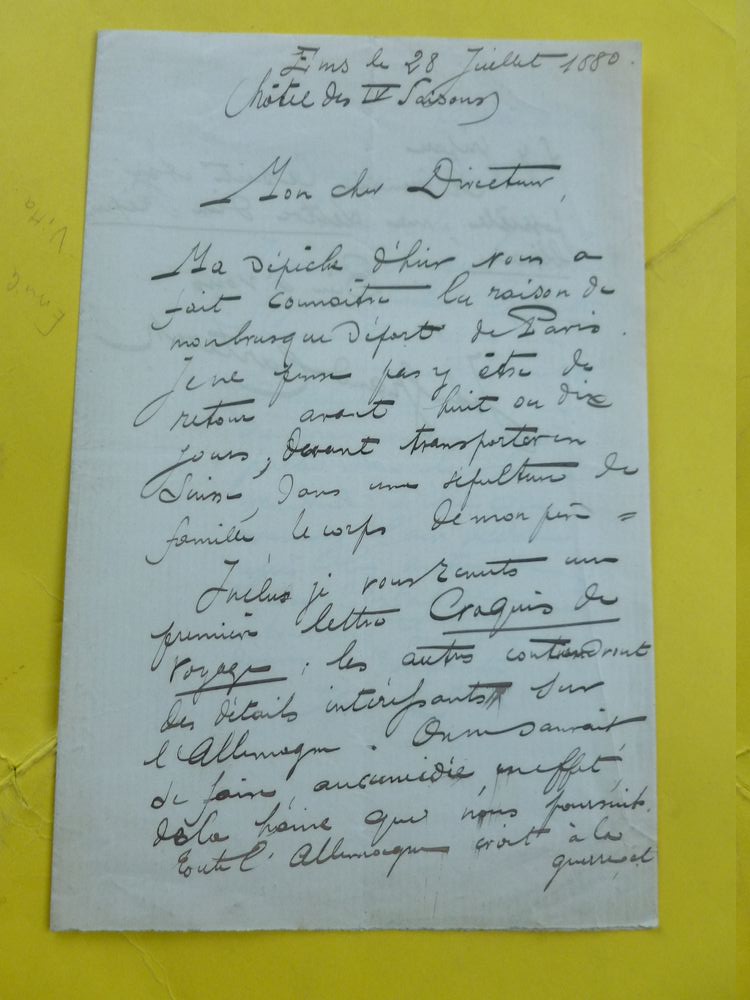 Ems le 28 Juillet 1880.
(hôtel des IV Saisons)
Mon cher Directeur,
Ma dépêche d'hier vous a
fait connaître la raison de
mon brusque départ de Paris.
Je ne pense pas y être de
retour avant huit ou dix
jours, devant transporter en
Suisse, dans une sépulture de
famille le corps de mon père =
Inclus je vous remets une
première lettre Croquis de
voyage ; les autres contiendront
des détails intéressants sur
l'Allemagne. On ne saurait
se faire, aucune idée, en effet,
de la haine qui nous poursuit.
Toute l'Allemagne croit à la
guerre et